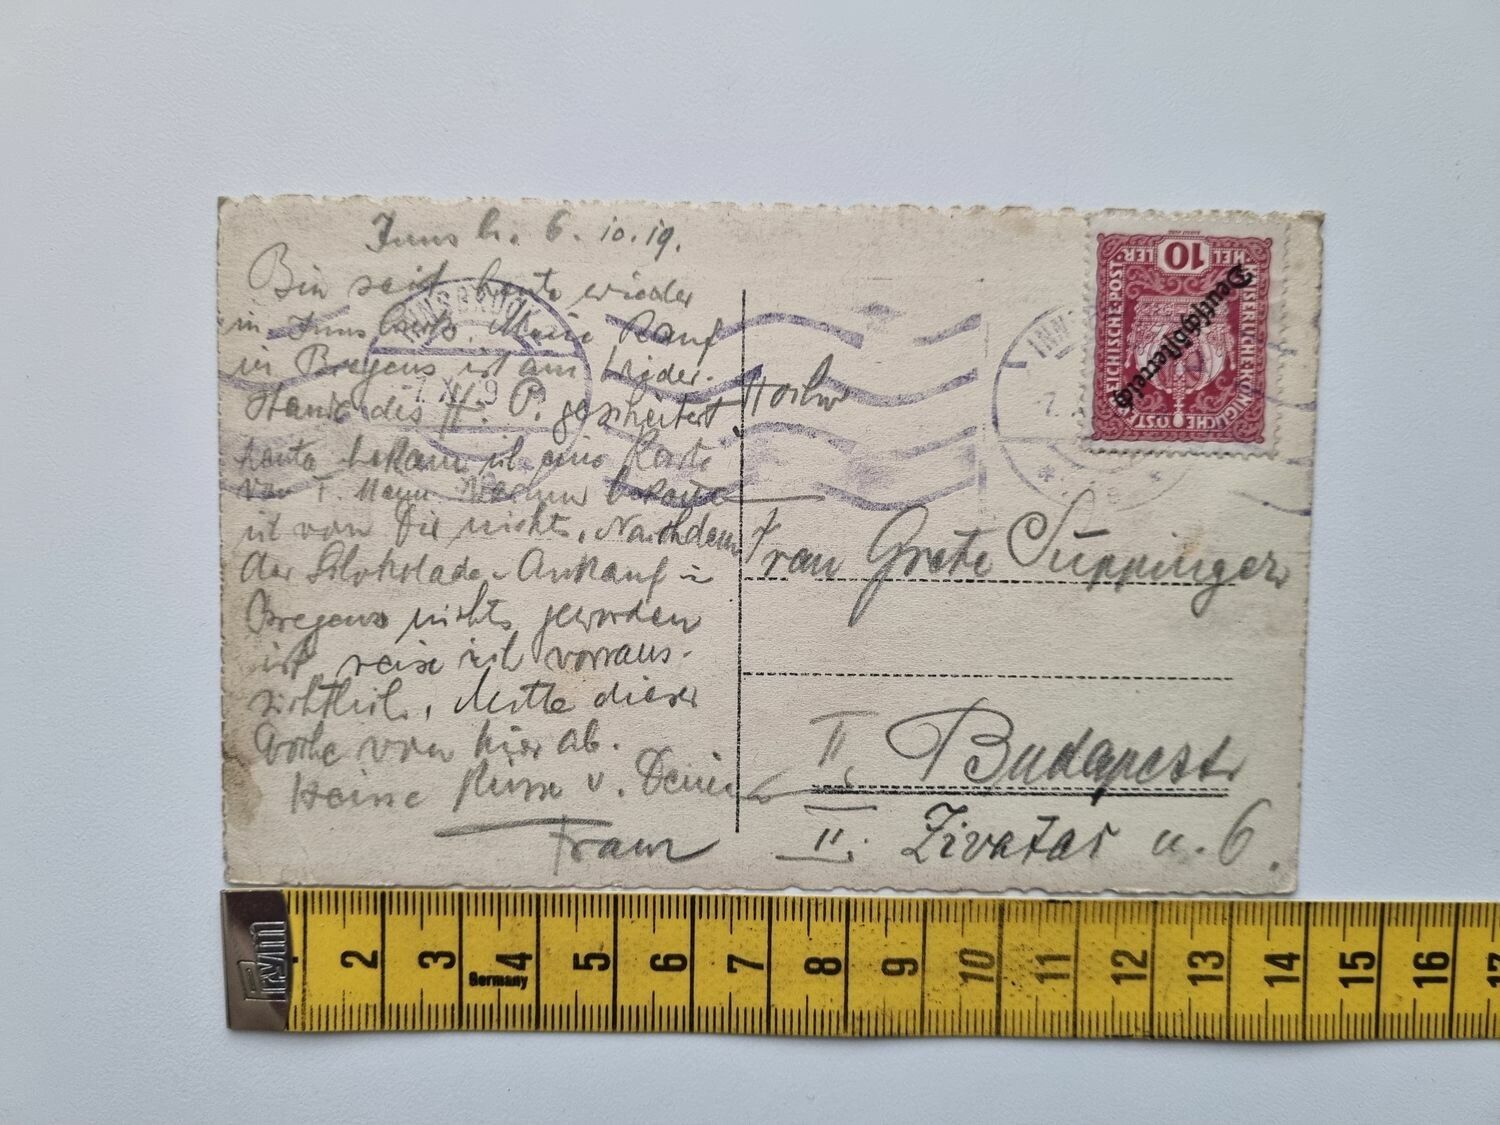 Innsb. 6. 10. 19.
Bin seit heute wieder
in Innsbruck. Meine Kauf
in Bregenz ist am Wieder-
stande des H. P. gescheitert
heute bekam ich eine Karte
von F. Mann. Warum bekam
ich von Dir nichts. Nachdem
der Schokolade-Ankauf in
Bregenz nichts geworden
ist, reise ich vorraus-
sichtlich, Mitte dieser
Woche von hier ab.
Heisse Küsse v. Deinem
Franz
Frau Grete Süppinger
II. Budapest
II. Zivatar u. 6.
INNSBRUCK
10
HELLER
KAISERLICHE KÖNIGLICHE ÖSTERREICHISCHE POST
Deutschösterreich
INN
Prym
Germany
2 3 4 5 6 7 8 9 10 11 12 13 14 15 16 17